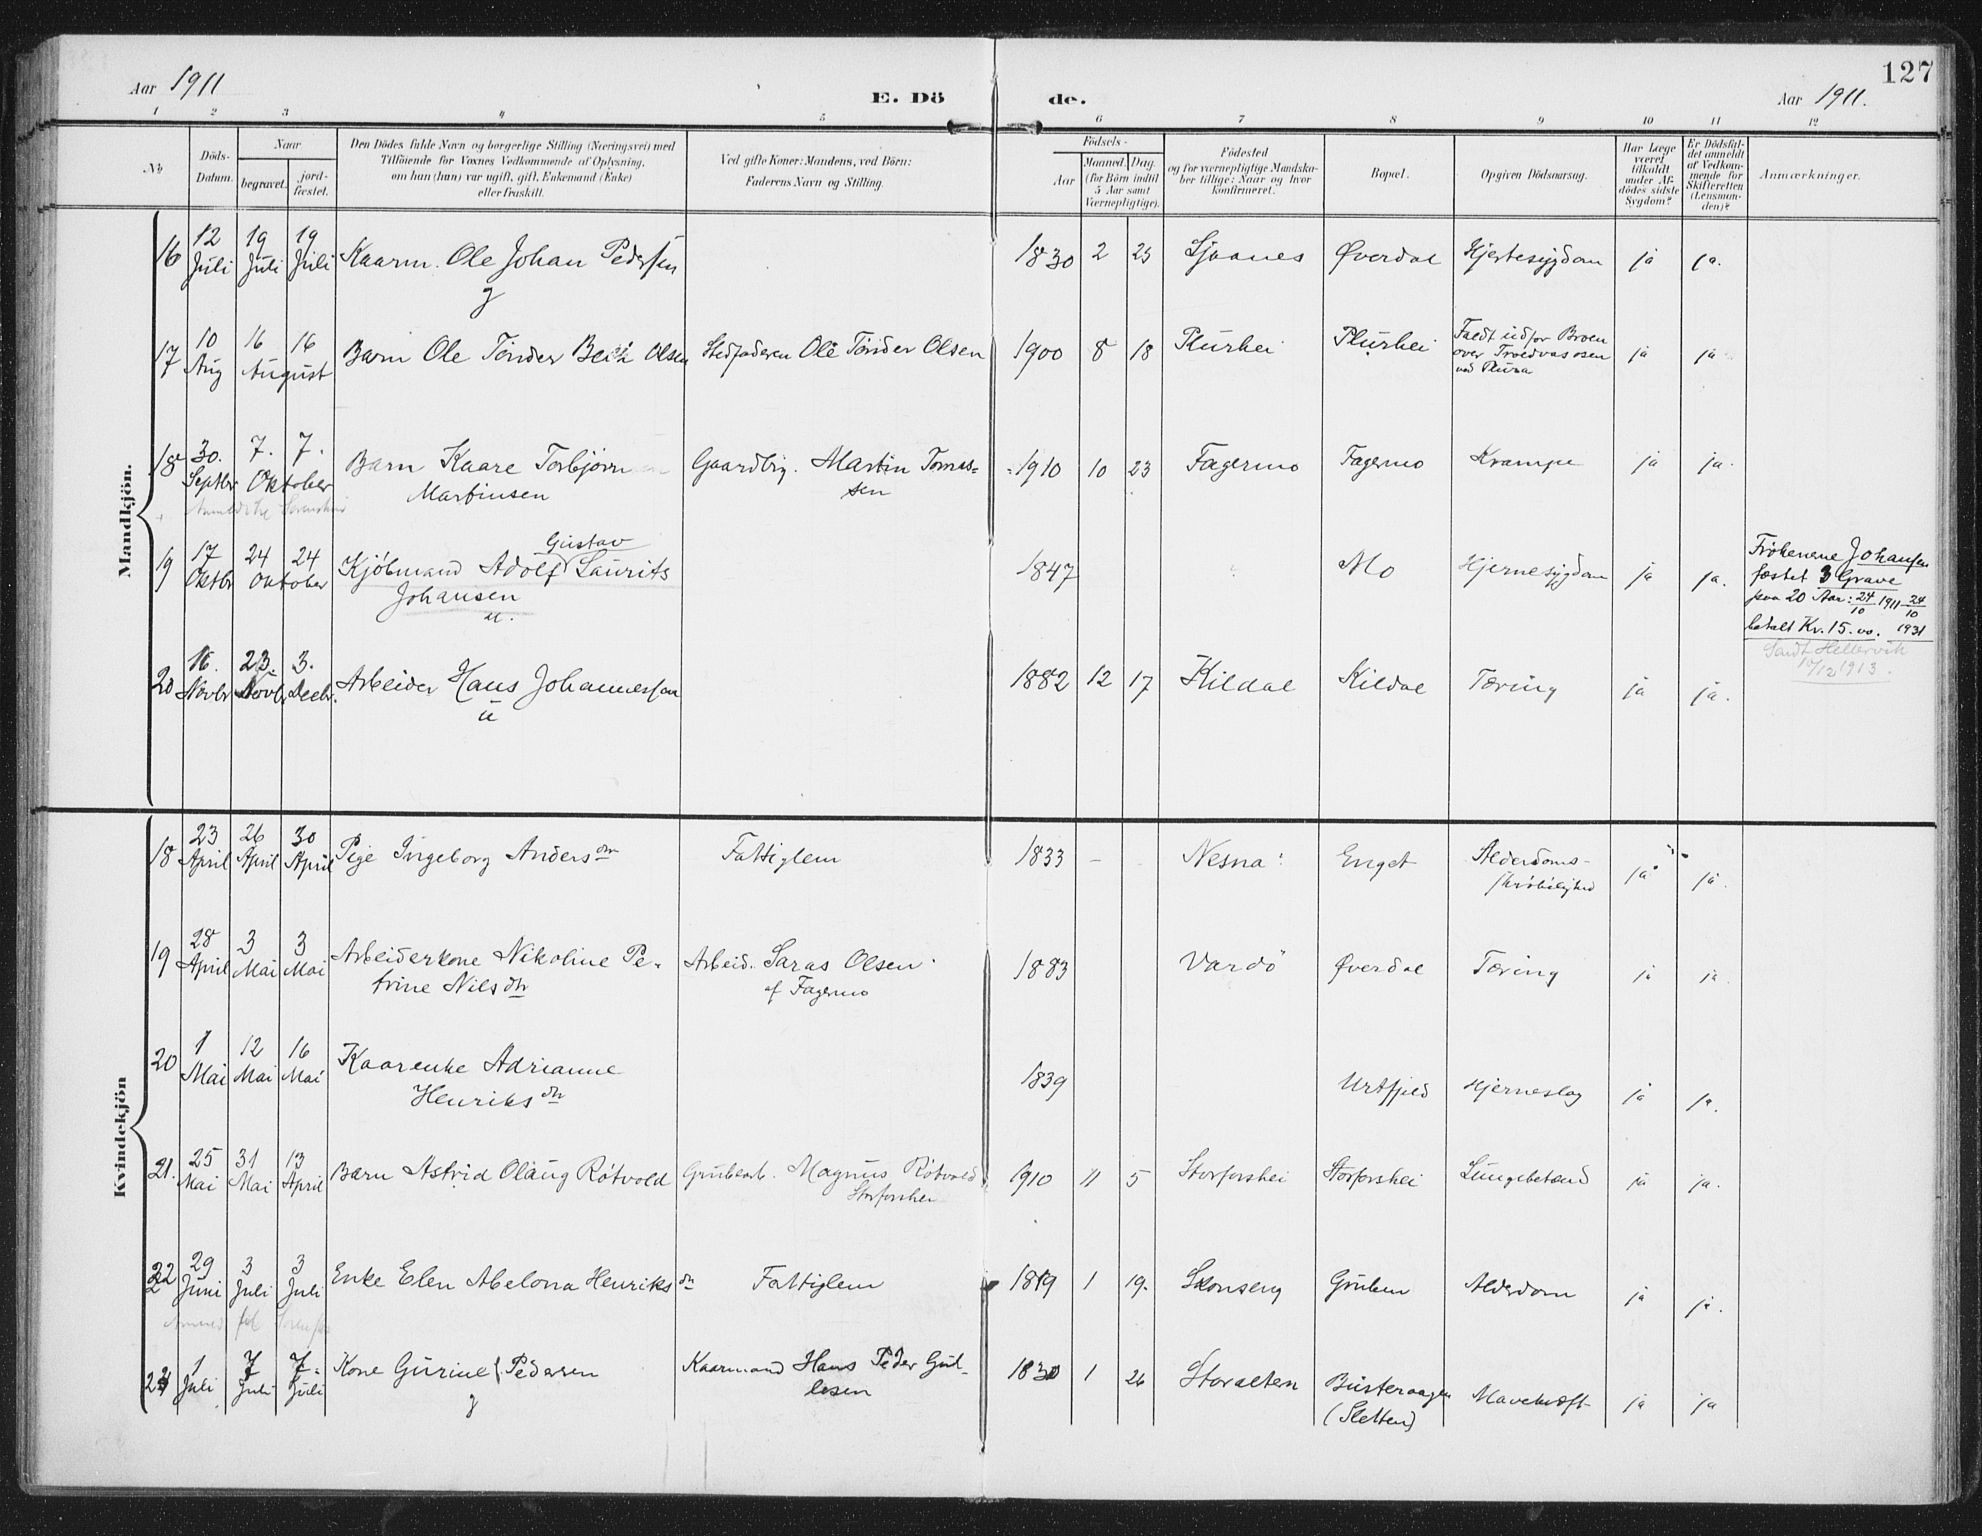 127
Aar 1911
E. Dö de.
Aar 1911.
1 2 3 4 5 6 7 8 9 10 11 12
No
Döds-
Datum.
Naar
begravet.
jord-
fæstet.
Den Dödes fulde Navn og borgerlige Stilling (Næringsvei) med
Tilföiende for Voxnes Vedkommende af Oplysning,
om han (hun) var ugift, gift, Enkemand (Enke)
eller fraskilt.
Ved gifte Koner: Mandens, ved Börn:
Faderens Navn og Stilling.
Födsels-
Aar
Maaned. Dag.
(for Börn indtil
5 Aar samt
Værnepligtige).
Födested
og for værnepligtige Mandska-
ber tillige: Naar og hvor
konfirmeret.
Bopæl.
Opgiven Dödsaarsag.
Har Læge
været
tilkaldt
under Af-
dödes sidste
Sygdom?
Er Dödsfal-
det anmeldt
af Vedkom-
mende for
Skifteretten
(Lensman-
den)?
Anmærkninger.
Mandkjön.
16 12 Juli 19 Juli 19 Juli Kaarm. Ole Johan Pedersen 1830 2 25 Sjaanes Øverdal Hjertesygdom ja ja.
g
17 10 Aug 16 16 August Barn Ole Tønder Olsen Stedfaderen Ole Tønder Olsen 1900 8 18 Plurhei Plurhei Faldt udfor Broen
over
ved Plura ja ja
18 30. Septbr 7. 7. Oktober Barn Kaare Torbjørn Gaardbrg. Martin Tomas- 1910 10 23 Fagermo Fagermo Krampe ja ja.
Martinsen sen
Gustav
19 17 Oktbr 24 24 Oktober Kjøbmand Adolf Laurits 1847 Mo Hjernesygdom ja ja.
Johansen
Frøknene Johansen
fæstet 3 Grave
paa 20 Aar: 24/10 1911 24/10
betalt Kr. 15.00. 1931
1913.
20 16. Novbr 23. Novbr 3. Decbr. Arbeider Hans Johannessen 1882 12 17 Kildal Kildal Tæring ja ja.
u
Kvindekjön
18 23 April 26 April 30 April Pige Ingeborg Andersdtr Fattiglem 1833 - - Nesna Enget Alderdoms-
skrøbelighed ja ja.
19 28 April 3 Mai 3 Mai Arbeiderkone Nikoline Pe- Arbeid. Saras Olsen 1883 Vardö Øverdal Tæring ja ja.
trine Nilsdtr af Fagermo
20 1 Mai 12 Mai 16 Mai Kaarenke Adrianne 1839 Urtfjeld Hjerneslag ja ja.
Henriksdtr
21. 25 Mai 31 Mai 13 April Barn Astrid Olaug Røtvold Grubearb. Magnus Røtvold 1910 11 5 Storforshei Storforshei Lungebetænd ja ja.
Storforshei
22 29 Juni 3 Juli 3 Juli Enke Elen Abelona Henriksdtr Fattiglem 1819 1 19. Skonseng Gruben Alderdom ja ja.
1 Juli 7 Juli 7. Juli Kone Gurine Pedersen Kaarmand Hans Peder Gul- 1830 1 26 Storalten Mavekræft ja ja
g lesen (Sletten)